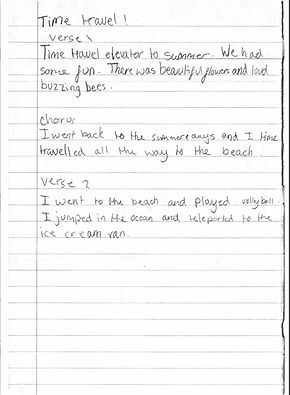 Time travel!
Verse 1
Time travel elevator to summer. We had
some fun. There was beautiful flowers and loud
buzzing bees.
chorus
I went back to the summer and I time
travelled all the way to the beach.
Verse 2
I went to the beach and played vollyball.
I jumped in the ocean and teleported to the
ice cream van.